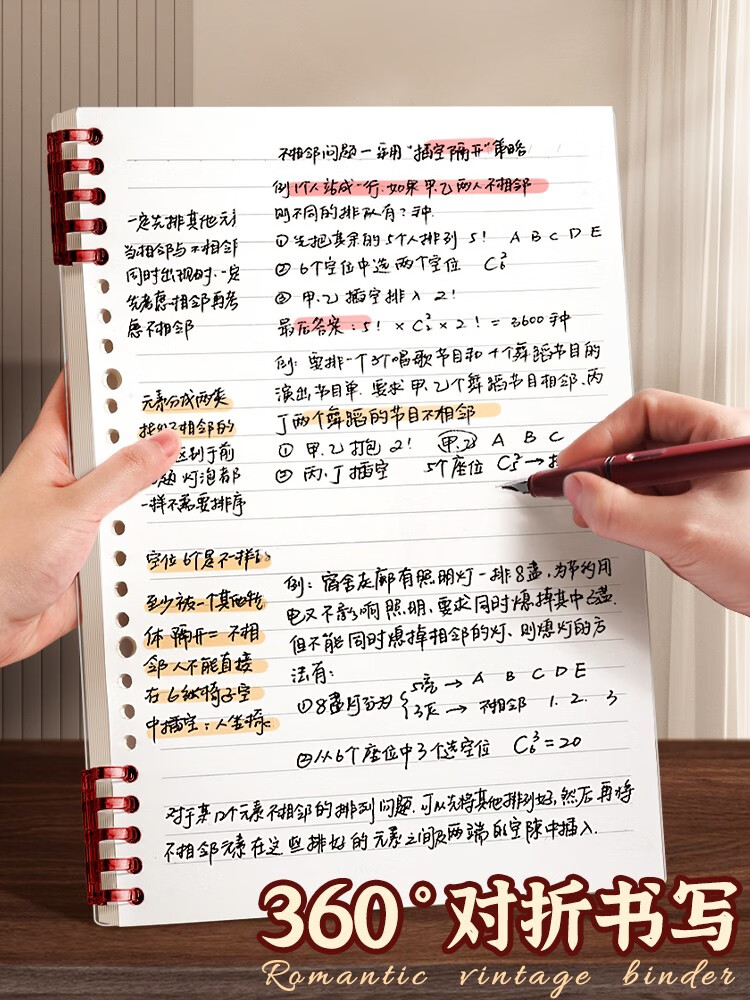 不相邻问题一采用"插空隔开"策略
例1个人站成一行.如果甲乙两人不相邻
则不同的排队有?种.
①先把其余的5个人排列 5! A B C D E
②6个空位中选两个空位 C₆²
③甲.乙插空排入 2!
最后答案:5! × C₆² × 2! = 3600种
例:要排一个3个唱歌节目和4个舞蹈节目的
演出节目单.要求甲.乙个舞蹈节目相邻.丙
丁两个舞蹈的节目不相邻
①甲.乙打包 2! 甲.乙 A B C
②丙.丁插空 5个座位 C₅² →
一定先排其他元
当相邻与不相邻
同时出现时.一定
先考虑相邻再考
虑不相邻
元素分成两类
不相邻的
区别于前
题 灯泡都
一样不需要排序
空位6个是不一样的
至少被一个其他物
体 隔开=不相
邻 人不能直接
在6张椅子空
中插空:人坐椅
例:宿舍走廊有照明灯一排8盏,为节约用
电又不影响照明,要求同时熄掉其中3盏.
但不能同时熄掉相邻的灯、则熄灯的方
法有:
①8盏灯分为 5亮→ A B C D E
3灭→ 不相邻 1. 2. 3
②从6个座位中3个选空位 C₆³=20
对于某几个元素不相邻的排列问题.可以先将其他排列好,然后再将
不相邻元素在这些排好的元素之间及两端的空隙中插入.
360°对折书写
Romantic vintage binder